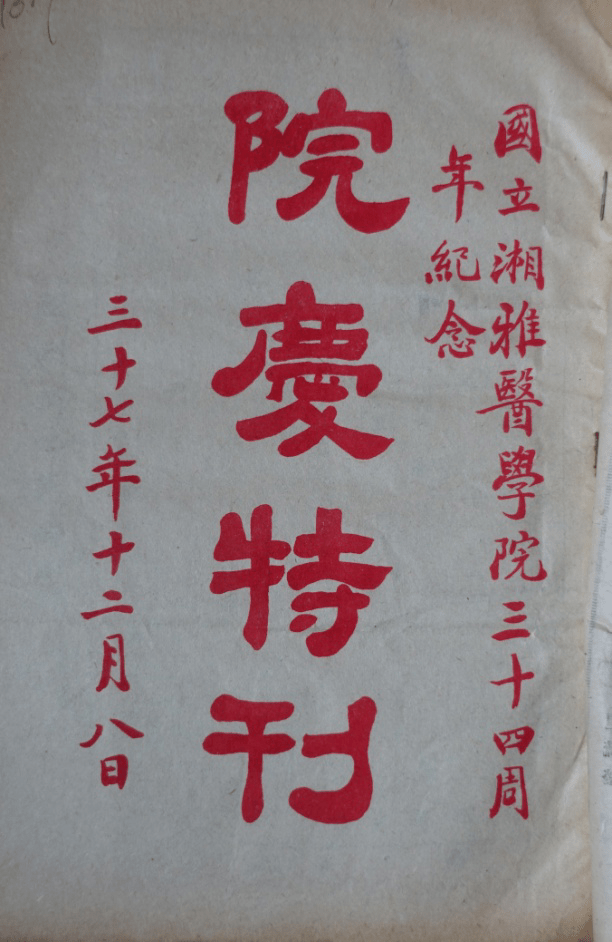 國立湘雅醫學院三十四周
年紀念
院慶特刊
三十七年十二月八日